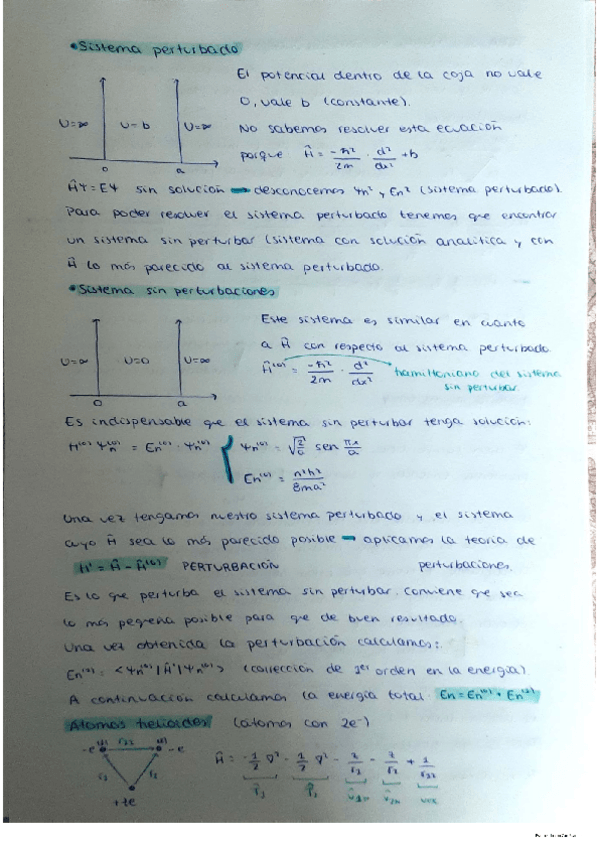 •Sistema perturbado
El potencial dentro de la caja no vale
0, vale b (constante).
U=∞ U=b U=∞
No sabemos resolver esta ecuación
porque Ĥ = -ħ²/2m · d²/dx² + b
0 a
ĤΨ=EΨ sin solución → desconocemos Ψn² y En² (sistema perturbado).
Para poder resolver el sistema perturbado tenemos que encontrar
un sistema sin perturbar (sistema con solución analítica y con
Ĥ lo más parecido al sistema perturbado.
•Sistema sin perturbaciones
Este sistema es similar en cuanto
a Ĥ con respecto al sistema perturbado
U=∞ U=0 U=∞
Ĥ⁽⁰⁾ = -ħ²/2m · d²/dx² hamiltoniano del sistema
sin perturbar.
0 a
Es indispensable que el sistema sin perturbar tenga solución:
H⁽⁰⁾ Ψn⁽⁰⁾ = En⁽⁰⁾ · Ψn⁽⁰⁾ { Ψn⁽⁰⁾ = √2/a sen πx/a
En⁽⁰⁾ = n²h²/8ma²
Una vez tengamos nuestro sistema perturbado y el sistema
cuyo Ĥ sea lo más parecido posible → aplicamos la teoría de
H' = Ĥ - Ĥ⁽⁰⁾ PERTURBACIÓN perturbaciones.
Es lo que perturba el sistema sin perturbar. Conviene que sea
lo más pequeña posible para que de buen resultado.
Una vez obtenida la perturbación calculamos:
En⁽¹⁾ = <Ψn⁽⁰⁾|Ĥ'|Ψn⁽⁰⁾> (corrección de 1er orden en la energía).
A continuación calculamos la energía total. En = En⁽⁰⁾ + En⁽¹⁾
Átomos helioides (átomos con 2e⁻)
-e r12 -e
Ĥ = -1/2 ∇² - 1/2 ∇² - z/r1 - z/r2 + 1/r12
r1 r2
+ze